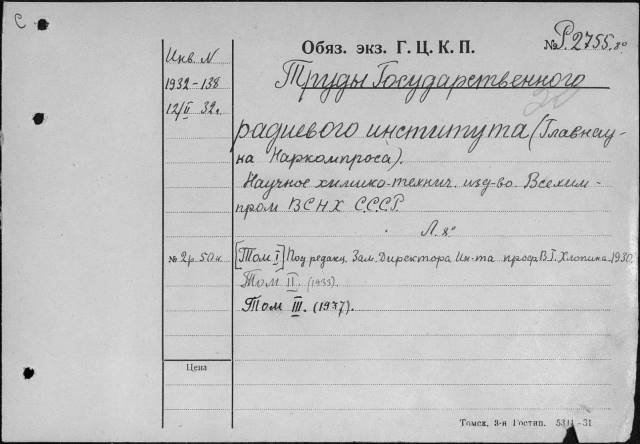 С
Обяз. экз. Г. Ц. К. П.
№ Р. 2755. 8º
Инв. N
1932-138
12/II 32 г.
Труды Государственного
радиевого института (Главнау-
ка Наркомпроса).
Научное химико-технич. изд-во. Всехим-
пром ВСНХ СССР.
Л. 8º
№ 2 р. 50 к.
[Том I] Под редакц. Зам. Директора Ин-та проф. В. Г. Хлопина. 1930.
Том II. (1933).
Том III. (1937).
Цена
Томск, 3-я Гостип. 5311-31